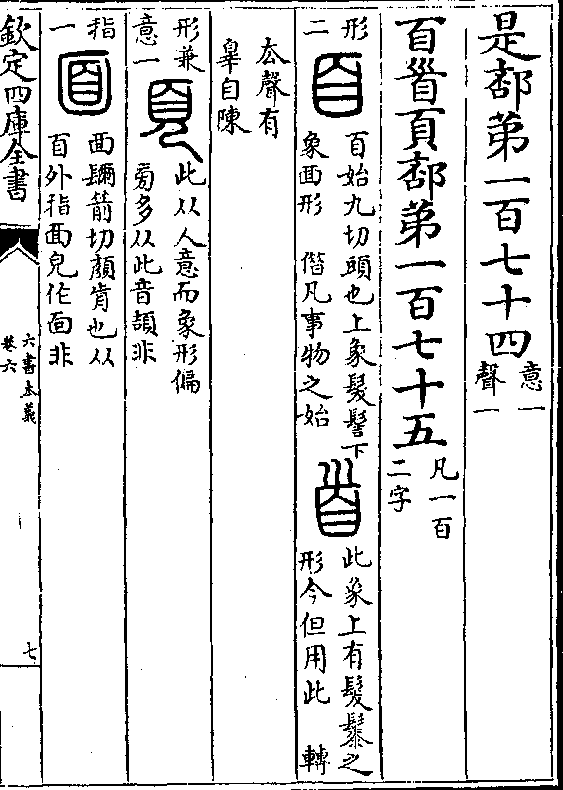 是部第一百七十四
意一
聲一
𦣻首頁部第一百七十五
凡一百
二字
形
二
𦣻
𦣻始九切頭也上象髮髻下
象面形　偕凡事物之始
首
此象上有髮鬈之
形今但用此　轉
厺聲有
辠自陳
形兼
意一
頁
此从人意而象形偏
旁多从此音頡非
指
一
面
面𨲠箭切顏肯也从
𦣻外指面皃作靣非
欽定四庫全書
六書本義
卷六
七